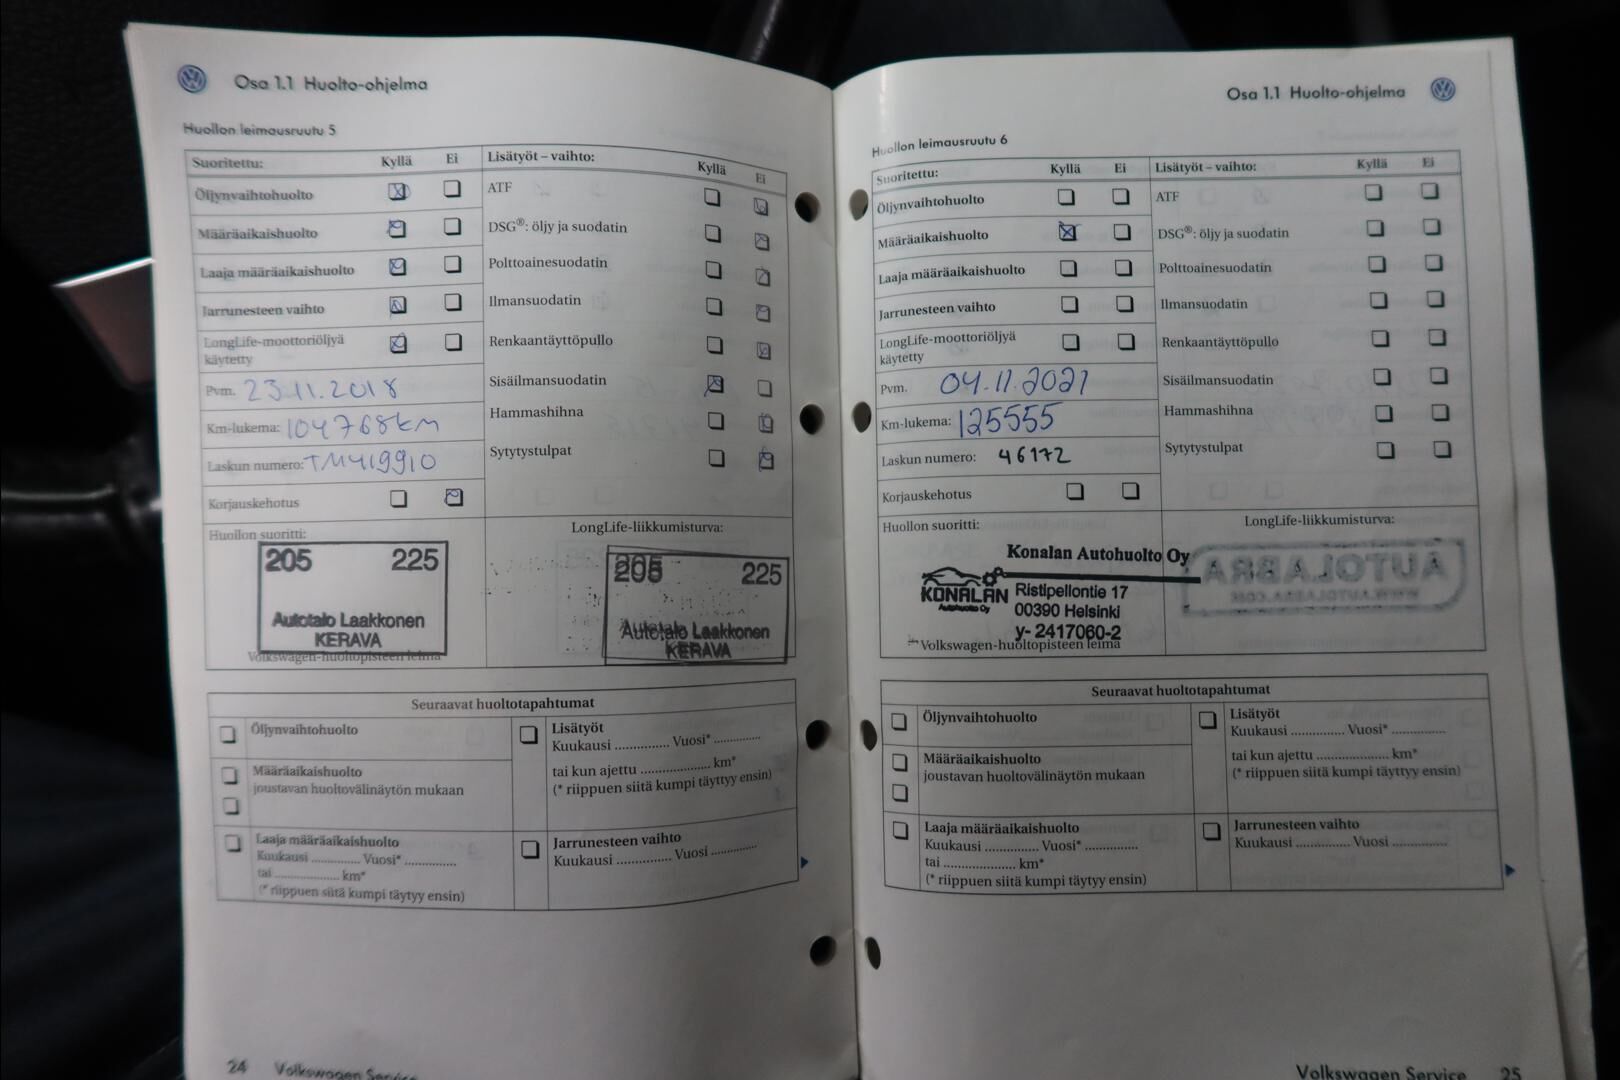 Osa 1.1 Huolto-ohjelma
Huollon leimausruutu 5
Suoritettu: Kyllä Ei
Öljynvaihtohuolto
Määräaikaishuolto
Laaja määräaikaishuolto
Jarrunesteen vaihto
LongLife-moottoriöljyä
käytetty
Pvm. 23.11.2018
Km-lukema: 104768km
Laskun numero: TM419910
Korjauskehotus
Lisätyöt – vaihto: Kyllä Ei
ATF
DSG®: öljy ja suodatin
Polttoainesuodatin
Ilmansuodatin
Renkaantäyttöpullo
Sisäilmansuodatin
Hammashihna
Sytytystulpat
Huollon suoritti:
205 225
Autotalo Laakkonen
KERAVA
Volkswagen-huoltopisteen leima
LongLife-liikkumisturva:
205 225
Autotalo Laakkonen
KERAVA
Seuraavat huoltotapahtumat
Öljynvaihtohuolto
Määräaikaishuolto
joustavan huoltovälinäytön mukaan
Laaja määräaikaishuolto
Kuukausi .............. Vuosi* ..............
tai .................... km*
(* riippuen siitä kumpi täytyy ensin)
Lisätyöt
Kuukausi .............. Vuosi* ............
tai kun ajettu .................. km*
(* riippuen siitä kumpi täyttyy ensin)
Jarrunesteen vaihto
Kuukausi .............. Vuosi ............
24 Volkswagen Service
Osa 1.1 Huolto-ohjelma
Huollon leimausruutu 6
Suoritettu: Kyllä Ei
Öljynvaihtohuolto
Määräaikaishuolto
Laaja määräaikaishuolto
Jarrunesteen vaihto
LongLife-moottoriöljyä
käytetty
Pvm. 04.11.2021
Km-lukema: 125555
Laskun numero: 46172
Korjauskehotus
Lisätyöt – vaihto: Kyllä Ei
ATF
DSG®: öljy ja suodatin
Polttoainesuodatin
Ilmansuodatin
Renkaantäyttöpullo
Sisäilmansuodatin
Hammashihna
Sytytystulpat
Huollon suoritti:
Konalan Autohuolto Oy
KONALAN
Autohuolto Oy
Ristipellontie 17
00390 Helsinki
y- 2417060-2
Volkswagen-huoltopisteen leima
LongLife-liikkumisturva:
AUTOLABRA
WWW.AUTOLABRA.COM
Seuraavat huoltotapahtumat
Öljynvaihtohuolto
Määräaikaishuolto
joustavan huoltovälinäytön mukaan
Laaja määräaikaishuolto
Kuukausi .............. Vuosi* ..............
tai .................... km*
(* riippuen siitä kumpi täytyy ensin)
Lisätyöt
Kuukausi .............. Vuosi* ..............
tai kun ajettu .................... km*
(* riippuen siitä kumpi täyttyy ensin)
Jarrunesteen vaihto
Kuukausi .............. Vuosi ..............
Volkswagen Service 25